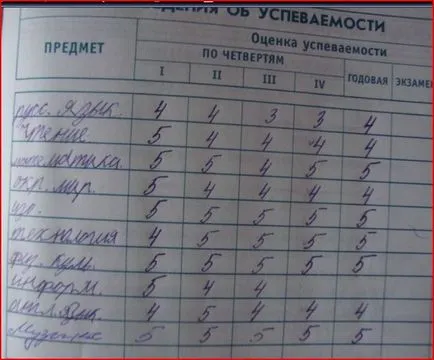 ДЕНИЯ ОБ УСПЕВАЕМОСТИ
ПРЕДМЕТ Оценка успеваемости
ПО ЧЕТВЕРТЯМ ГОДОВАЯ ЭКЗАМЕ
I II III IV
рус. язык. 4 4 3 3 4
чтение 5 4 4 4 4
математика 5 5 4 5 5
окр. мир. 5 4 4 4 4
изо. 5 5 5 5 5
технология 4 5 5 5 5
физ. кум. 5 5 5 5 5
информ. 5 4 4
англ. язык. 4 5 4 4 4
Музыка 5 5 5 5 5